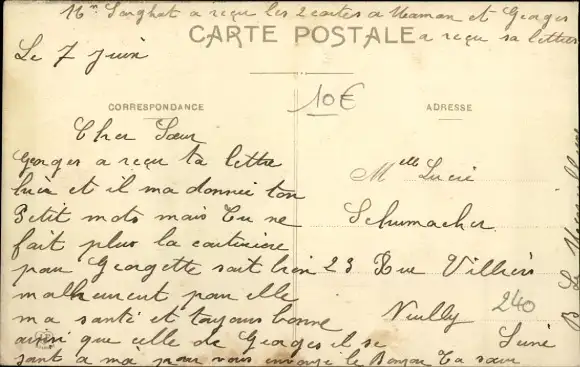 Mr Sorghat a reçu les 2 cartes a Maman et Georges
a reçu sa lettres
CARTE POSTALE
Le 7 Juin
10€
CORRESPONDANCE
ADRESSE
Cher Sœur
Georges a reçu ta lettre
hier et il ma donnée ton
Petit mots mais tu ne
fait plus la couturiere
pour Georgette sait bien
malheureut pour elle
ma santé et toujours bonne
ainsi que celle de Georges il se
sant a ma pour vous envoyé le Bonjour Ta sœur
Melle Lucie
Schumacher
23 Rue Villiers
Neuilly
240
Seine
B